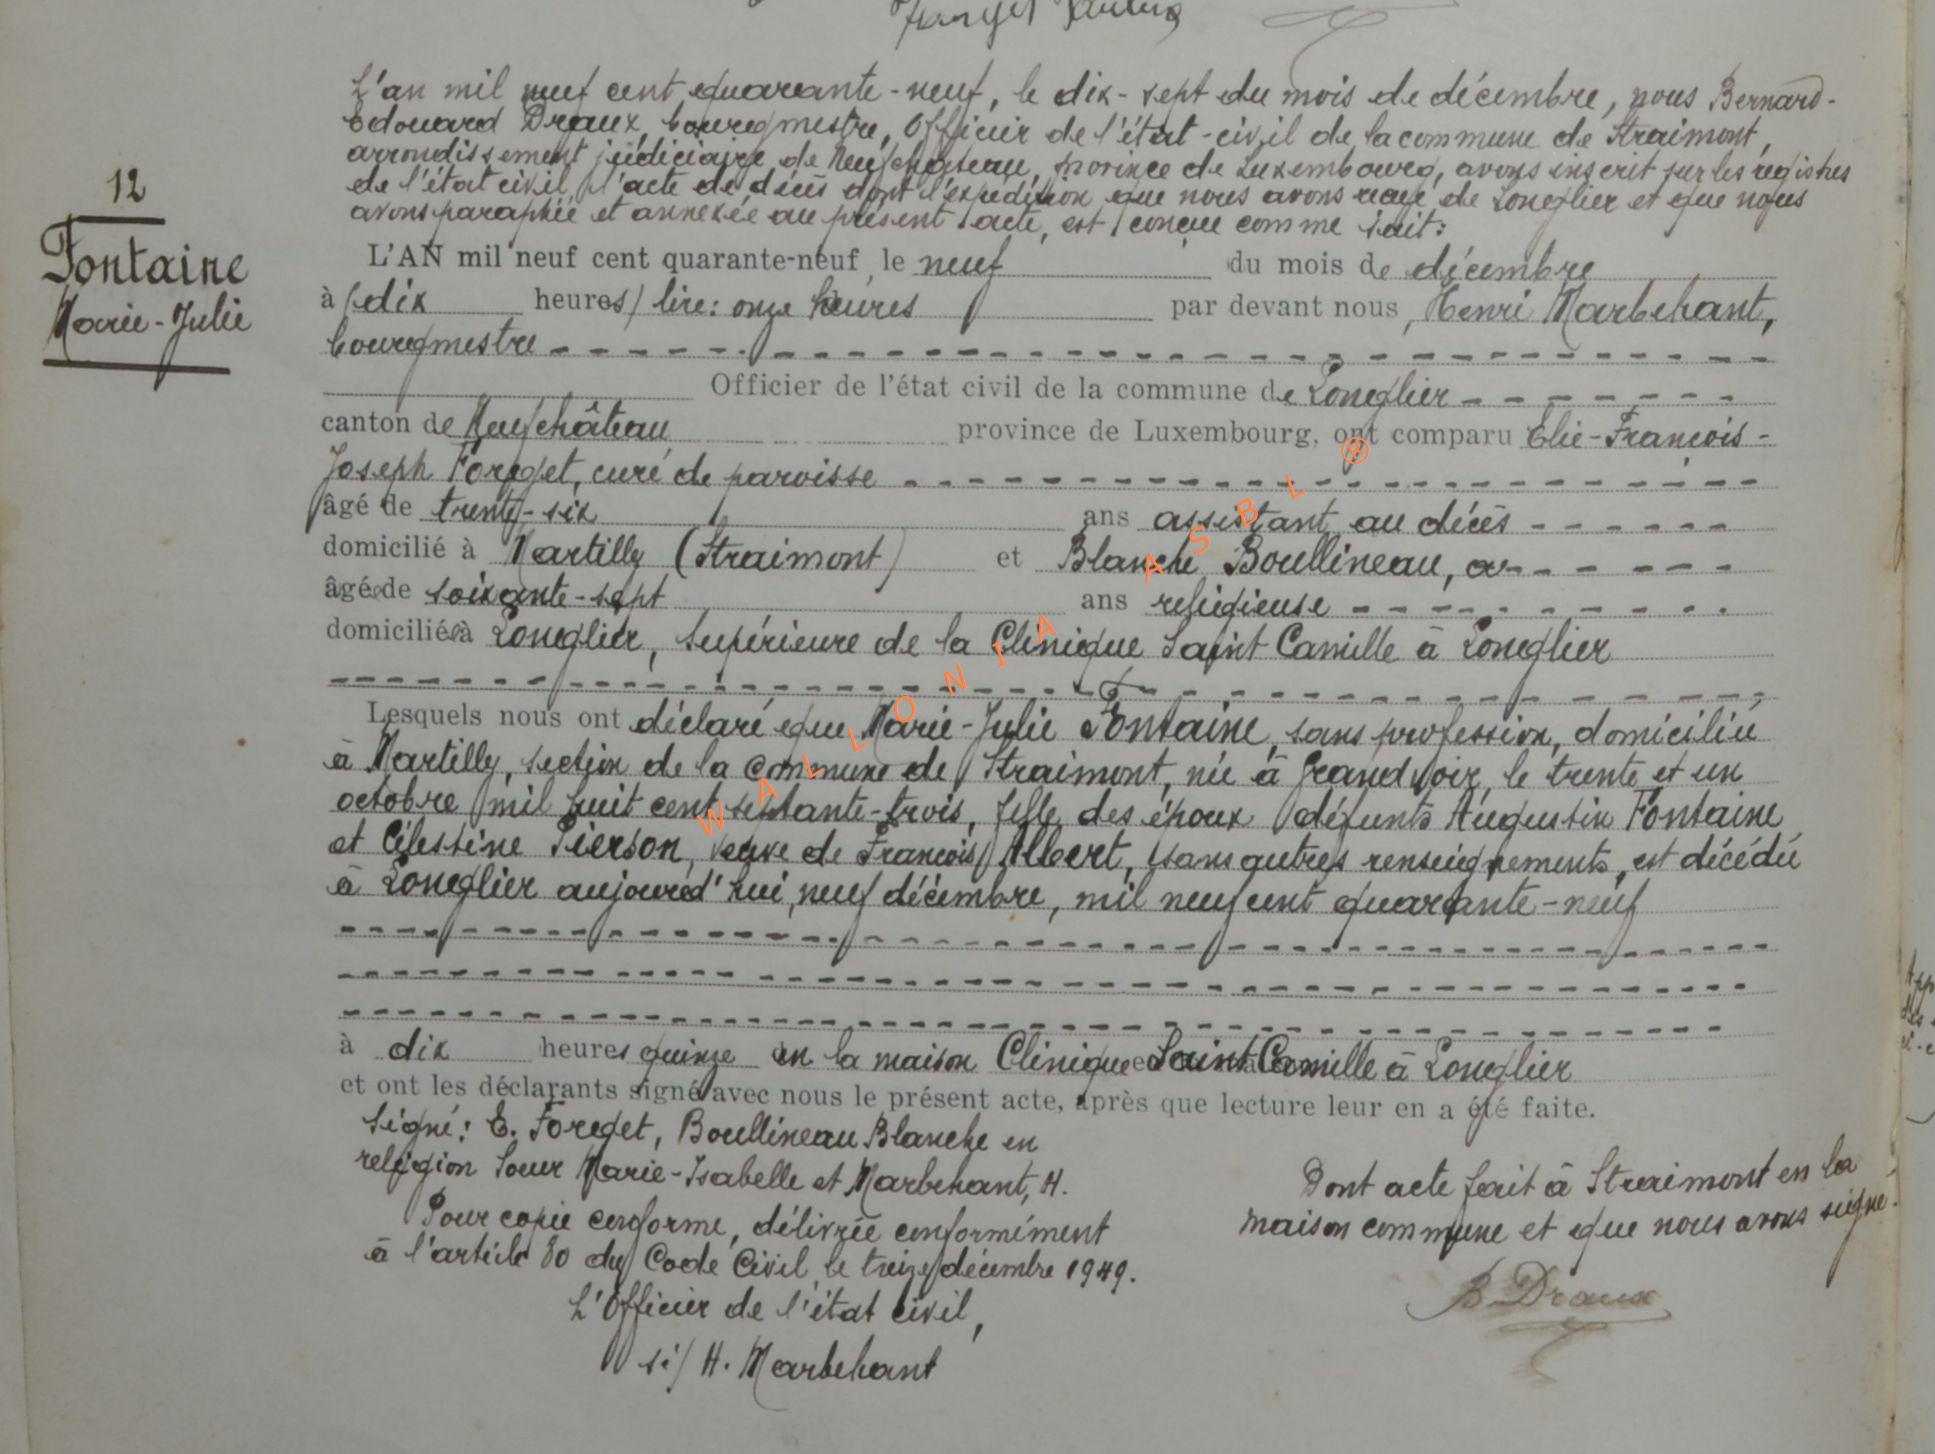 12
Fontaine
Marie-Julie
L'an mil neuf cent quarante-neuf, le dix-sept du mois de décembre, nous Bernard-
Edouard Draux, bourgmestre, Officier de l'état-civil de la commune de Straimont,
arrondissement judiciaire de Neufchâteau, province de Luxembourg, avons inscrit sur les registres
de l'état civil, l'acte de décès dont l'expédition que nous avons reçue de Longlier et que nous
avons paraphée et annexée au présent acte, est conçue comme suit:
L'AN mil neuf cent quarante-neuf, le neuf du mois de décembre
à (dix heures) lire: onze heures par devant nous, Henri Marbehant,
bourgmestre
Officier de l'état civil de la commune de Longlier
canton de Neufchâteau province de Luxembourg, ont comparu Elie-François-
Joseph Forget, curé de paroisse
âgé de trente-six ans assistant au décès
domicilié à Martilly (Straimont) et Blanche Boullineau,
âgée de soixante-sept ans religieuse
domiciliée à Longlier, Supérieure de la Clinique Saint Camille à Longlier
Lesquels nous ont déclaré que Marie-Julie Fontaine, sans profession, domiciliée
à Martilly, section de la commune de Straimont, née à Grandvoir, le trente et un
octobre mil huit cent septante-trois, fille des époux défunts Augustin Fontaine
et Célestine Pierson, veuve de François Albert, sans autres renseignements, est décédée
à Longlier aujourd'hui, neuf décembre, mil neuf cent quarante-neuf
à dix heures quinze en la maison Clinique Saint Camille à Longlier
et ont les déclarants signé avec nous le présent acte, après que lecture leur en a été faite.
Signé: E. Forget, Boullineau Blanche en
religion Soeur Marie-Isabelle et Marbehant, H.
Pour copie conforme, délivrée conformément
à l'article 80 du Code Civil, le treize décembre 1949.
L'Officier de l'état civil,
si/ H. Marbehant
Dont acte fait à Straimont en la
maison commune et que nous avons signé.
B Draux
WALLONIA ASBL ®